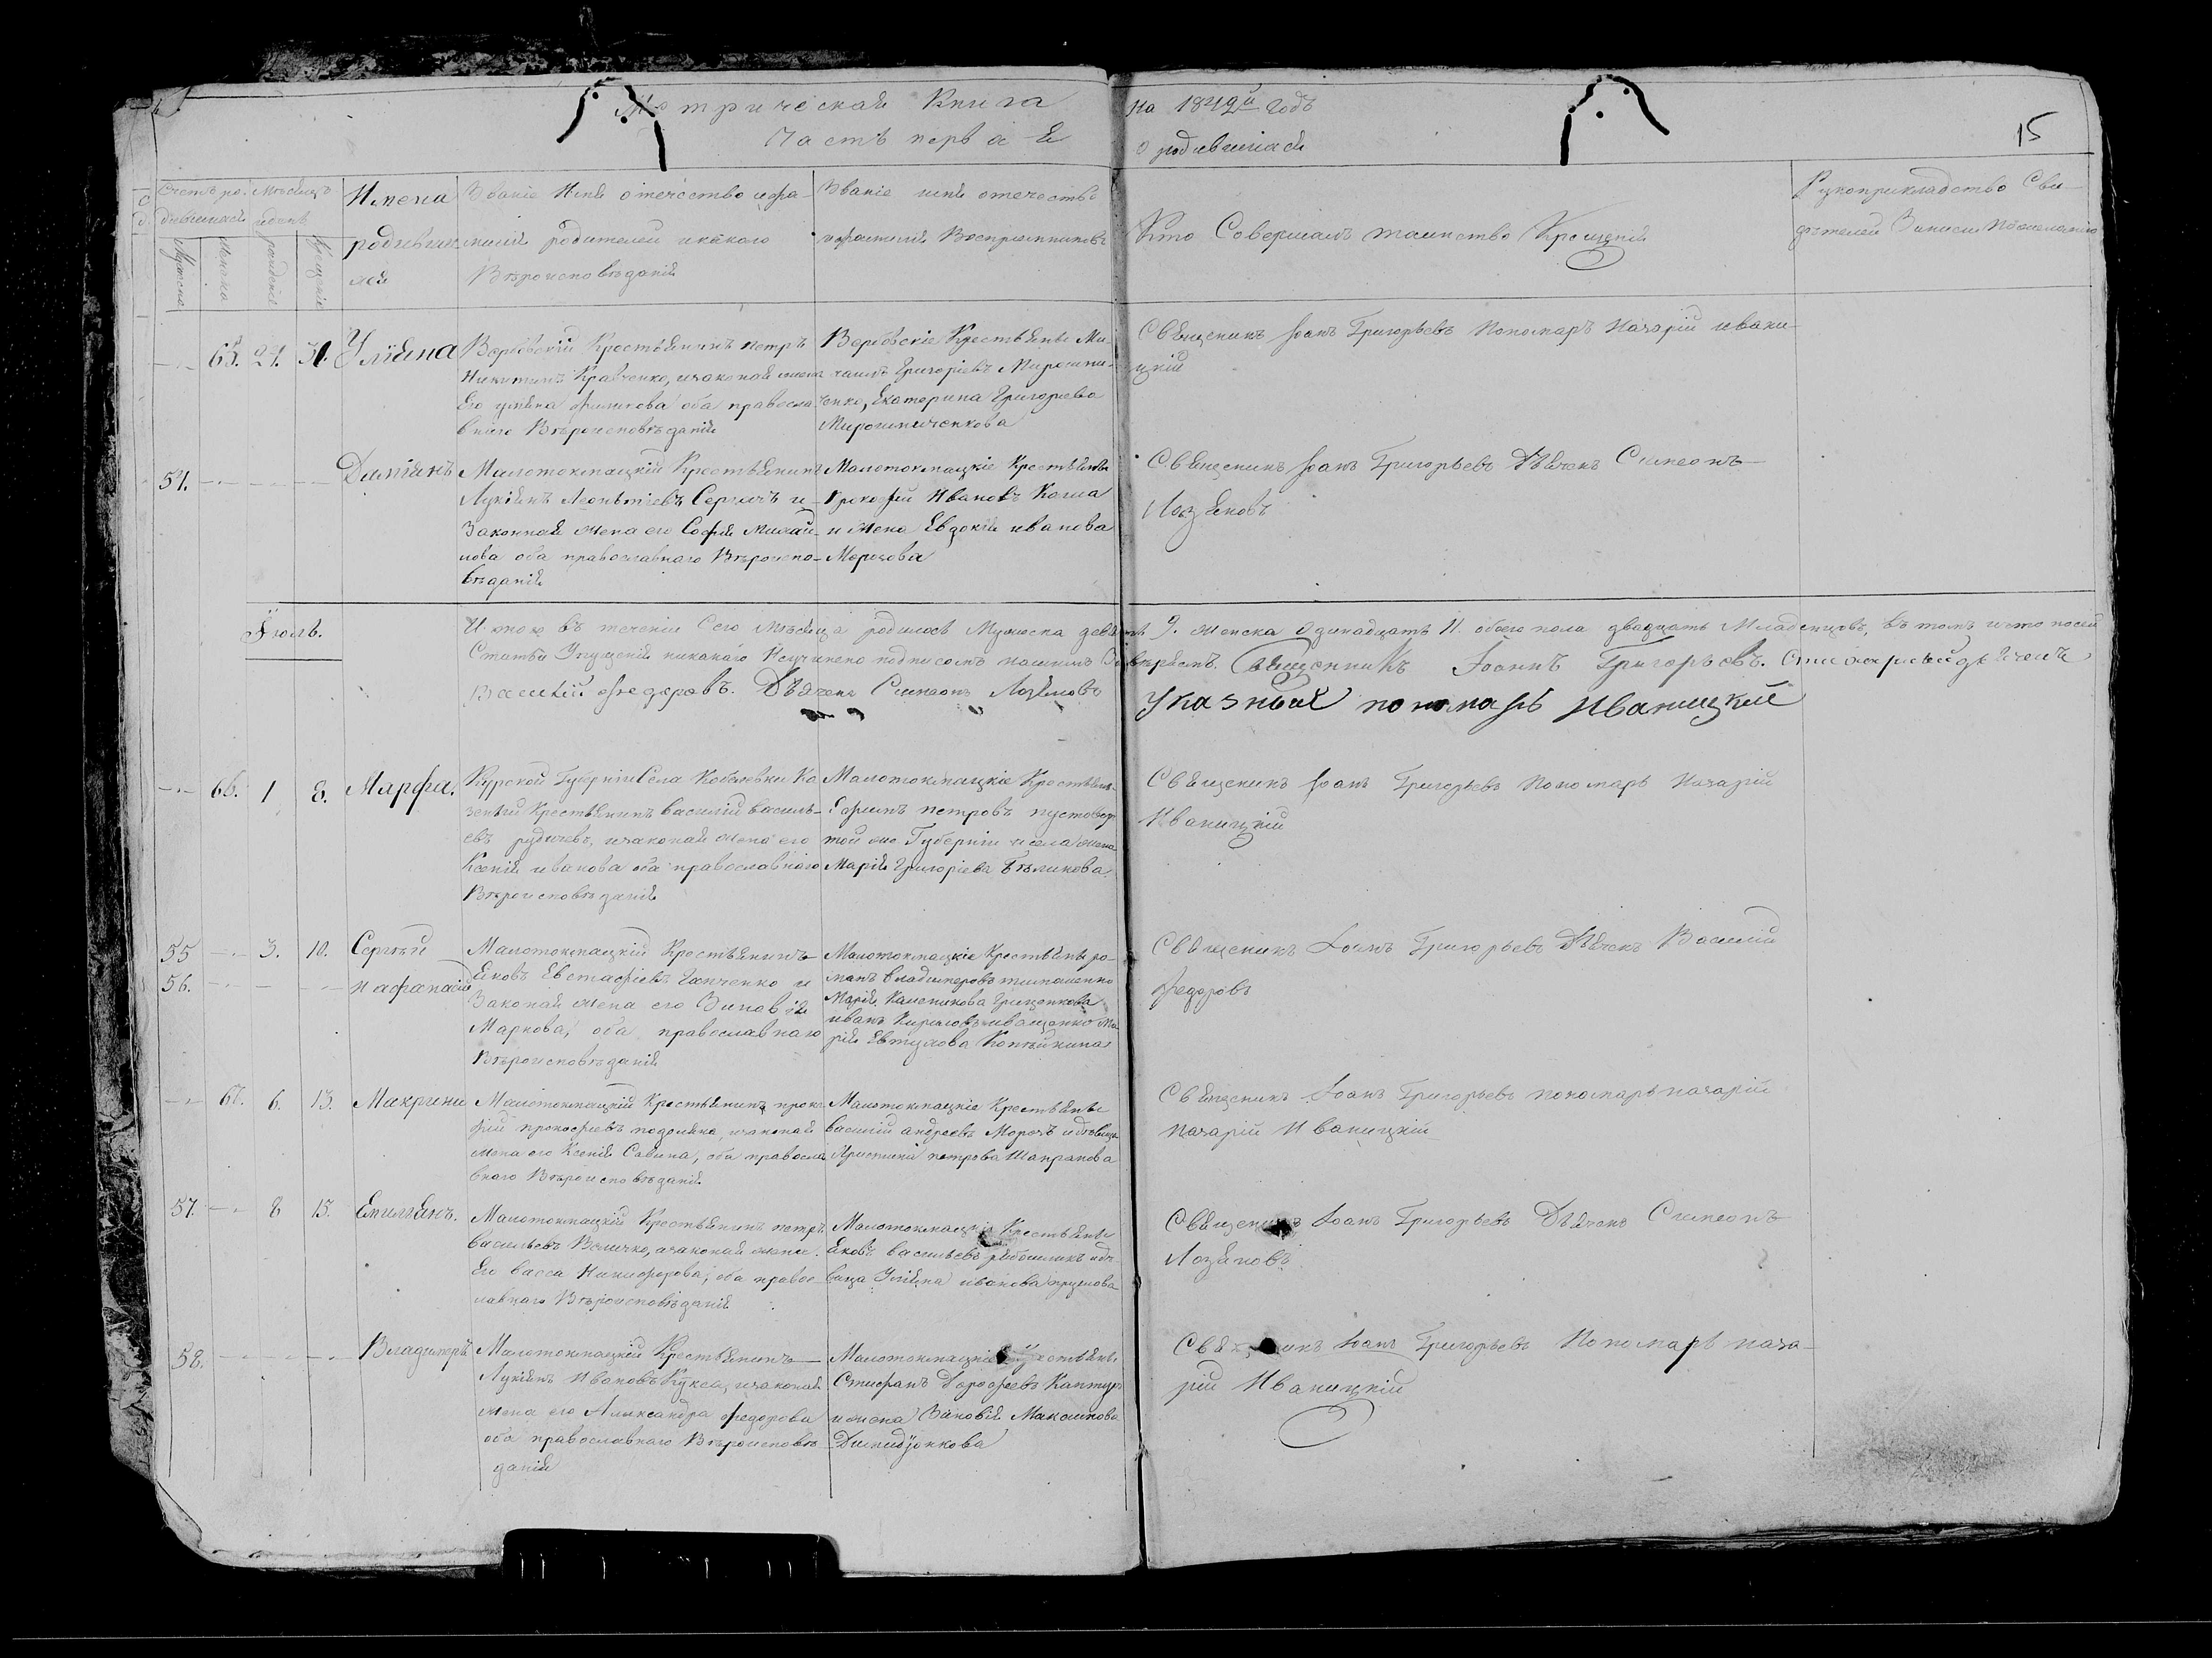 Метрическая Книга на 1842й годъ
Часть перва Я о родившихся
15
Счетъ ро- дившихся
Мѣсяцъ и день
Имена родивших ися
Званіе Имя отечество и фа-
милія родителей и какого
Вѣроисповѣданія
Званіе имя отечество
и фамилія Воспріемниковъ
Кто Совершалъ таинство Крещенія
Рукоприкладство Сви-
дѣтелей Записи по желанію
Мужеска
Женска
рожденія
Крещенія
65. 21. 31. Уліяна
Вербовскій Крестьянинъ петръ
Никитинъ Кравченко, изаконая жена
Его уліяна филипова оба правосла
внаго Вѣроисповѣданія
Вербовскіе Крестьяне Ми-
хаилъ Григоріевъ Мирошни-
ченко, Екатерина Григорьева
Мирошниченкова
Священикъ Іоанъ Григорьевъ Пономаръ Назарій ивани-
цкій
54. Даміянъ
Малотокмацкій Крестьянинъ
Лукіянъ Леонтіевъ Сергичъ и
Законная жена его Софія Михай-
лова оба православнаго Вѣроиспо-
вѣданія
Малотокмацкіе Крестьяне
Прокофій Ивановъ Коша
и жена Евдокія иванова
Морозова
Священикъ Іоанъ Григорьевъ Дьячекъ Симеонъ
Лозяновъ
Іюль.
Итого въ теченіи Сего Мѣсяца родилось Мужеска девять 9. женска Одинадцать 11. обоего пола двадцать Младенцовъ, въ томъ и что посей
Статьи Упущенія никакаго Неучинено подписомъ нашимъ Завѣряемъ. Священникъ Іоаннъ Григорьевъ.
Василій Федоровъ. Дьячекъ Симеонъ Лозяновъ
Указный пономарь Иваницкій
66. 1 8. Марфа.
Курской Губерніи Села Кобылевки Ка
зеный Крестьянинъ василій василь-
евъ рудичевъ, изаконая жена его
Ксенія иванова оба православнаго
Вѣроисповѣданія
Малотокмацкіе Крестьяне
Ефимъ петровъ пустовар
той же Губерніи и села жена
Марія Григоріева Бѣликова.
Священикъ Іоанъ Григорьевъ Пономарь Назарій
Иваницкій
55 3. 10. Сергѣй
56. и афанасій
Малотокмацкій Крестьянинъ
Яковъ Евстафіевъ Ганченко и
Законая жена его Зиновія
Маркова, оба православнаго
Вѣроисповѣданія
Малотокмацкіе Крестьяне ро-
манъ владимеровъ тимошенко
Марія Каленикова Грищенкова
иванъ Кириловъ иващенко Ма-
рія Евтухова Копѣйкина
Священикъ Іоанъ Григорьевъ Дьячекъ Василій
Федоровъ
67. 6. 13. Макрина
Малотокмацкій Крестьянинъ проко-
фій прокофіевъ подоляка, изаконая
жена его Ксенія Савина, оба правосла
внаго Вѣроисповѣданія
Малотокмацкіе Крестьяне
василій андреевъ Морозъ и дѣвица
Христина петрова Шапранова
Священикъ Іоанъ Григорьевъ пономарь назарій
назарій Иваницкій
57. 8 15. Емиліянъ.
Малотокмацкій Крестьянинъ петръ
васильевъ Величко, изаконая жена
Его васса Никифорова, оба право-
лавнаго Вѣроисповѣданія
Малотокмацкіе Крестьяне
Яковъ васильевъ рябошликъ и дѣ-
вица Уліяна иванова
Священикъ Іоанъ Григорьевъ Дьячекъ Симеонъ
Лозяновъ
58. Владимеръ
Малотокмацкій Крестьянинъ
Лукіянъ Ивановъ Кукса, изаконая
жена его Александра федорова
оба православнаго Вѣроисповѣ-
данія
Малотокмацкіе Крестьяне
Стифанъ Дорофеевъ Каптуръ
и жена Зиновія Максимова
Священикъ Іоанъ Григорьевъ Пономарь наза-
рій Иваницкій